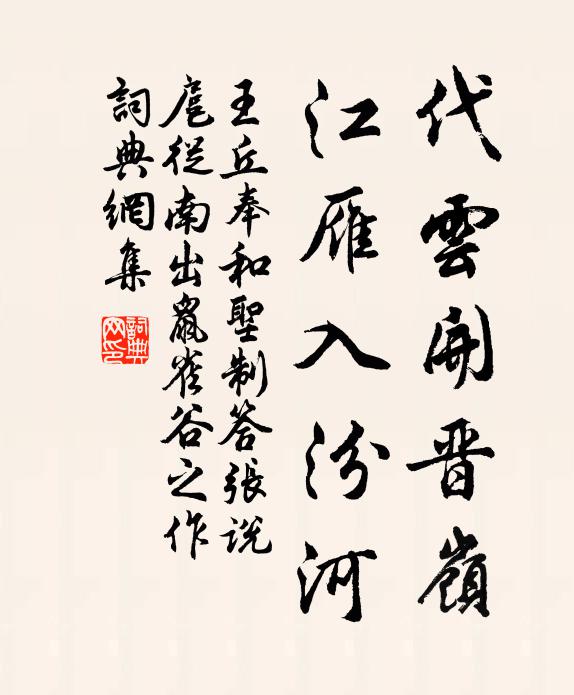 代雲開晋嶺
江雁入汾河
王丘奉和聖制答張説
扈從南出鼠雀谷之作
詞典網集
詞典網印